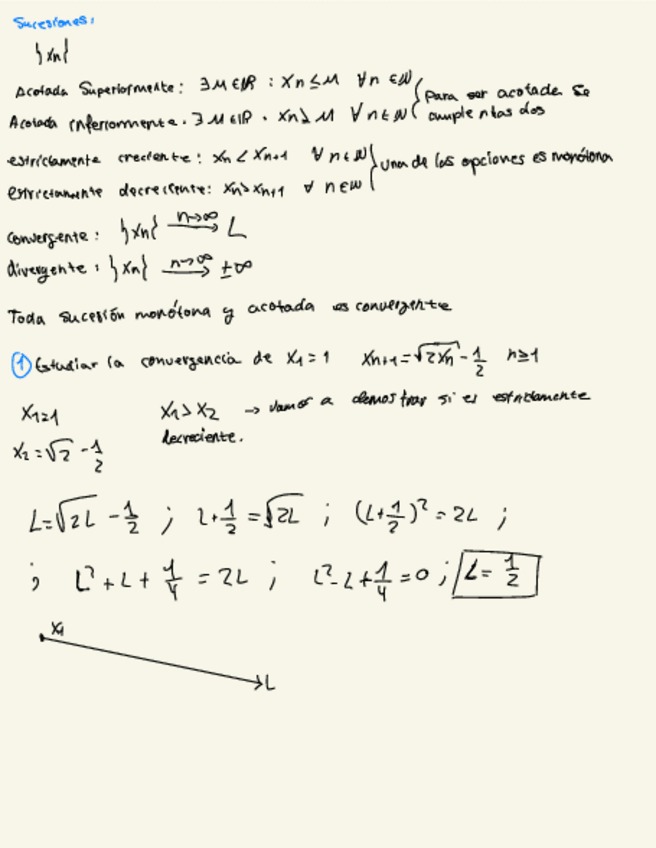 Sucesiones:
{xn}
Acotada Superiormente: ∃M∈ℝ : xn ≤ M ∀n∈ℕ
Acotada inferiormente. ∃M∈ℝ . xn ≥ M ∀n∈ℕ } Para ser acotada se cumplen las dos
estrictamente creciente: xn < xn+1 ∀n∈ℕ
estrictamente decreciente: xn > xn+1 ∀ n∈ℕ } una de las opciones es monótona
convergente: {xn} n→∞ → L
divergente: {xn} n→∞ → ±∞
Toda sucesión monótona y acotada es convergente
① Estudiar la convergencia de x1=1 xn+1=√2xn - 1/2 n≥1
x1=1 x1 > x2 → vamos a demostrar si es estrictamente
x2=√2 - 1/2 decreciente.
L=√2L - 1/2 ; L+1/2 = √2L ; (L+1/2)² = 2L ;
; L²+L+1/4 = 2L ; L²-L+1/4=0 ; L= 1/2
x1
L